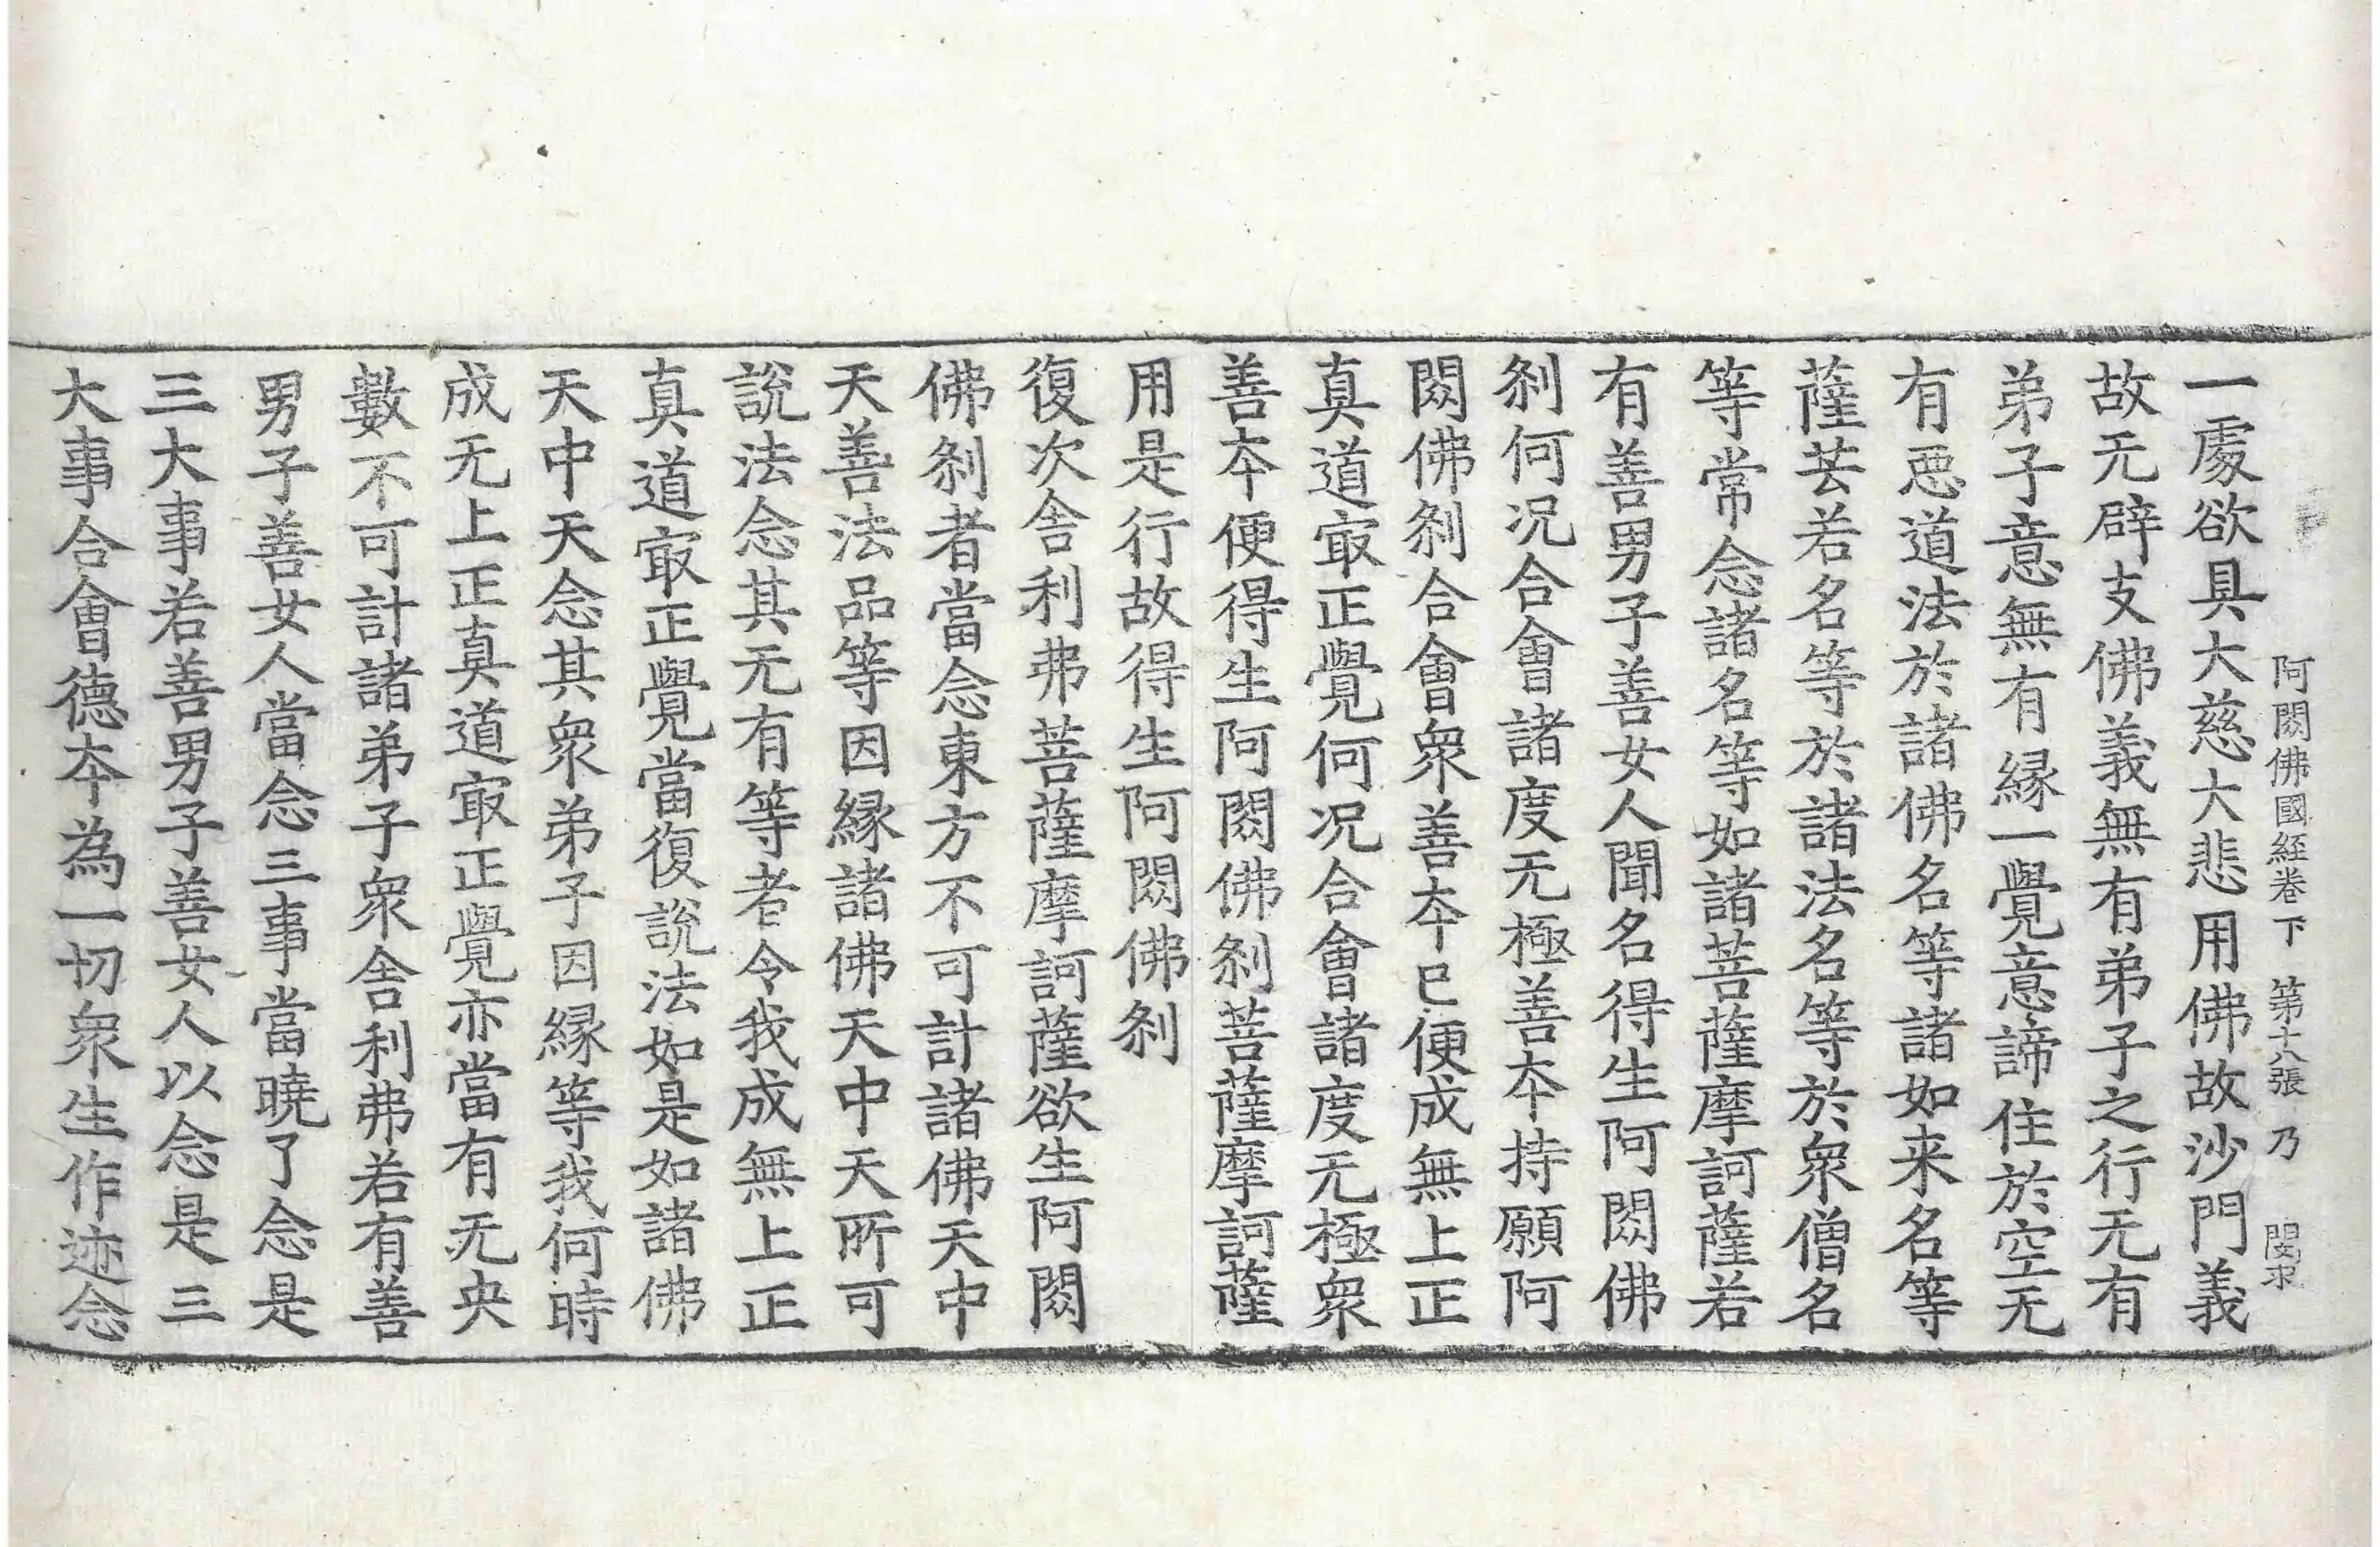 阿閦佛國経卷下 第十八張 乃 閔求
一處欲具大慈大悲用佛故沙門義
故无辟支佛義無有弟子之行无有
弟子意無有縁一覺意諦住於空无
有惡道法於諸佛名等諸如来名等
薩芸若名等於諸法名等於衆僧名
等常念諸名等如諸菩薩摩訶薩若
有善男子善女人聞名得生阿閦佛
刹何况合會諸度无極善夲持願阿
閦佛刹合會衆善夲巳便成無上正
真道㝡正覺何况合會諸度无極衆
善夲便得生阿閦佛刹菩薩摩訶薩
用是行故得生阿閦佛刹
復次舎利弗菩薩摩訶薩欲生阿閦
佛刹者當念東方不可計諸佛天中
天善法品等因縁諸佛天中天所可
説法念其无有等者令我成無上正
真道㝡正覺當復説法如是如諸佛
天中天念其衆弟子因縁等我何時
成无上正真道㝡正覺亦當有无央
數不可計諸弟子衆舎利弗若有善
男子善女人當念三事當曉了念是
三大事若善男子善女人以念是三
大事合會德夲為一切衆生作迹念